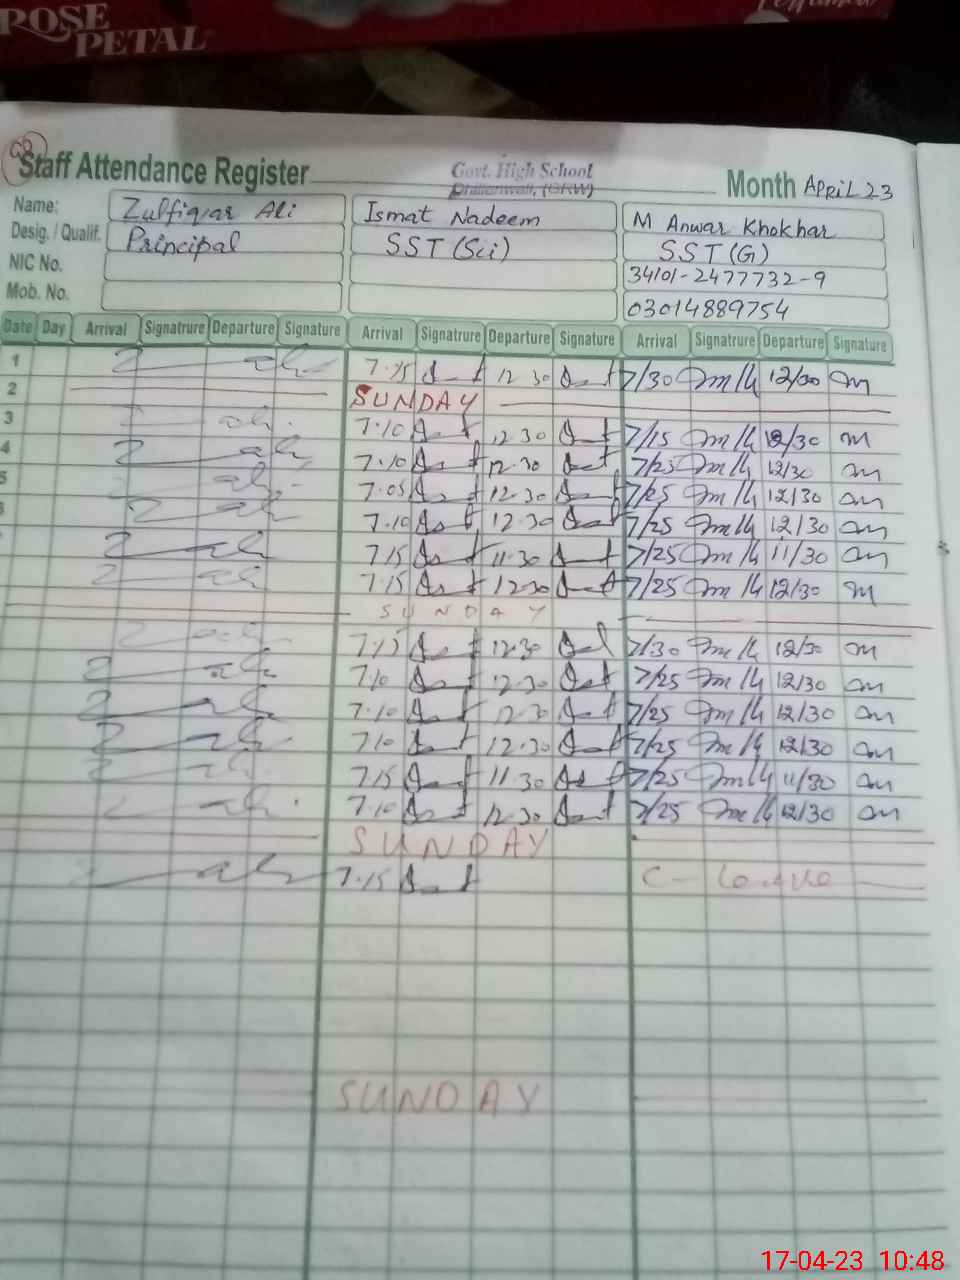 ROSE
PETAL
Staff Attendance Register Govt. High School Month APRIL 23
Name: Zulfiqar Ali Ismat Nadeem M Anwar Khokhar
Desig. / Qualif. Principal SST (Sci) SST (G)
NIC No. 34101-2477732-9
Mob. No. 03014889754
Date Day Arrival Signatrure Departure Signature Arrival Signatrure Departure Signature Arrival Signatrure Departure Signature
1 7.15 12 30 7/30 12/30
2 SUNDAY
3 7.10 12 30 7/15 12/30
4 7.10 12.30 7/25 12/30
5 7.05 12.30 7/25 12/30
7.10 12.30 7/25 12/30
7.15 11.30 7/25 11/30
7.15 12.30 7/25 12/30
SUNDAY
7.15 12.30 7/30 12/30
7.10 12.30 7/25 12/30
7.10 12.30 7/25 12/30
7.10 12.30 7/25 12/30
7.15 11.30 7/25 11/30
7.10 12.30 7/25 12/30
SUNDAY
7.15 C-leave
SUNDAY
17-04-23 10:48